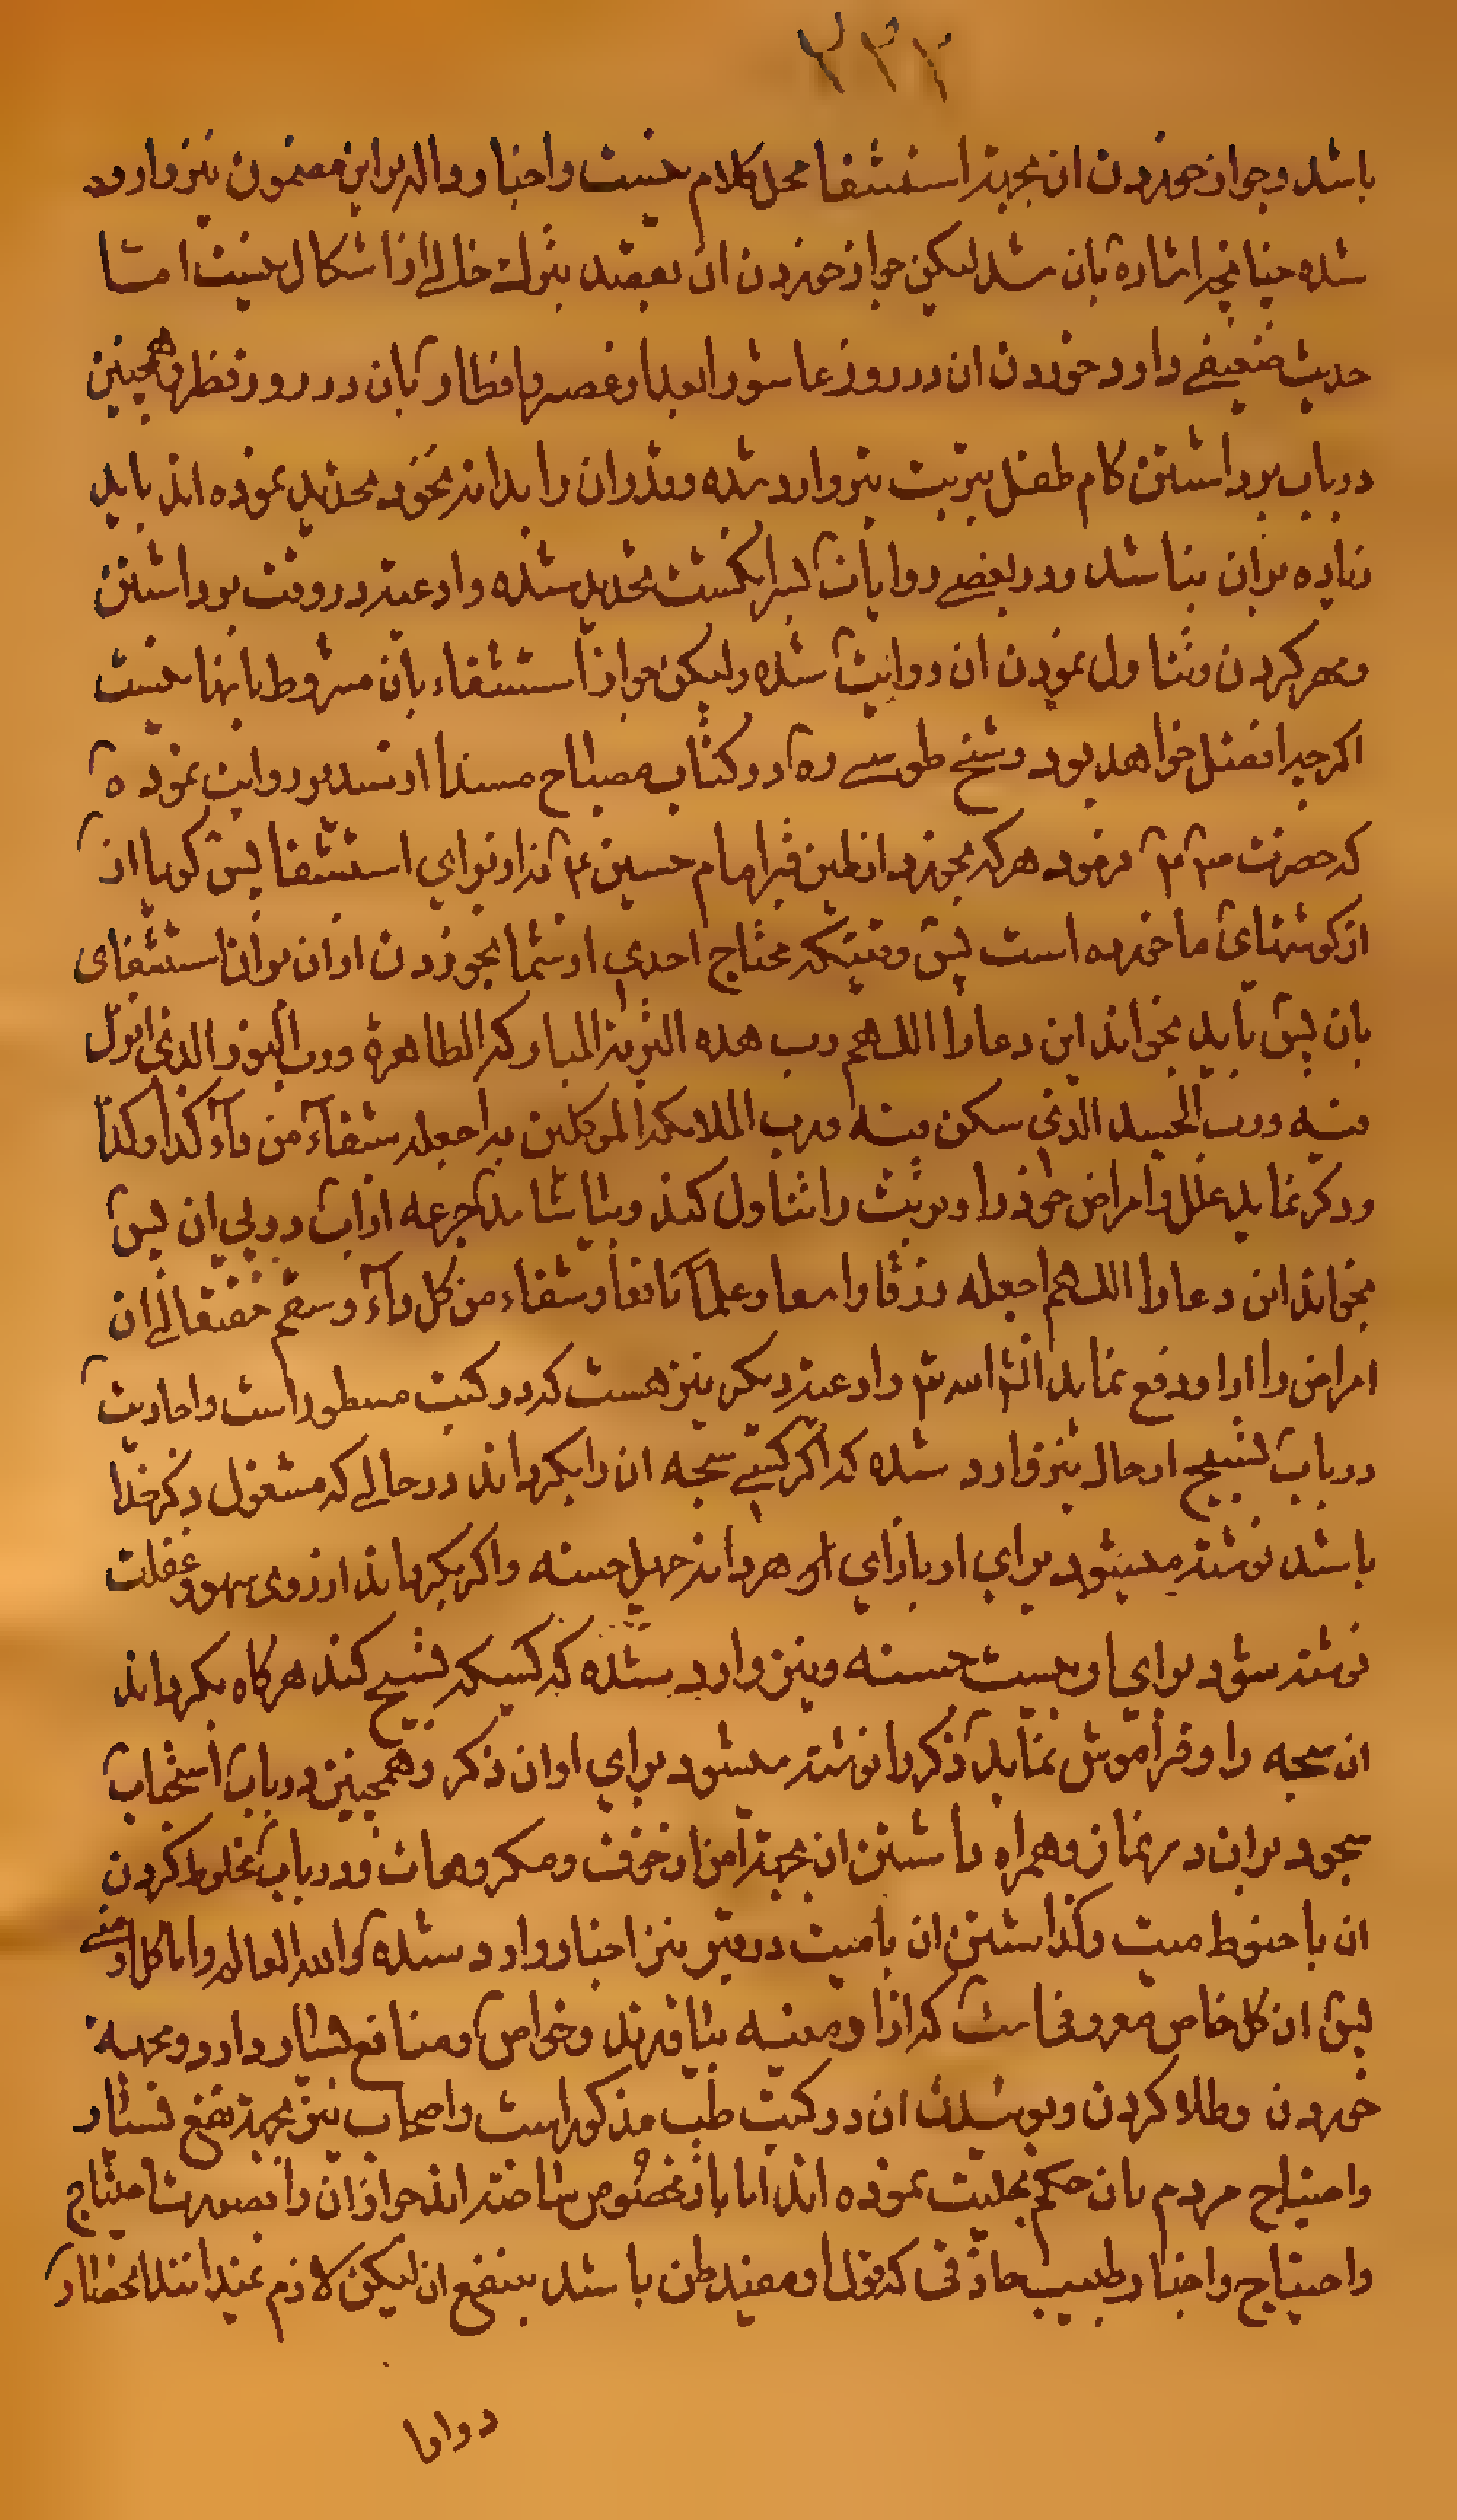 ۲۳۲
باشد و جواز خوردن ان بجهة استشفا محل کلام نیست و اخبار داله بر این مضمون نیز وارد
شده چنانچه اشاره بان شد لیکن جواز خوردن ان بقصد تبرک خالی از اشکال نیست اما
حدیث ضعیفی دارد خوردن ان در روز عاشورا بعد از عصر و افطار بان در روز فطر و همچنین
در باب برداشتن کام طفل بتربت نیز وارد شده و قدر ان را بدانه نخود تحدید نموده اند باید
زیاده بران نباشد و در بعضی روایات بسر انکشت تحدید شده و ادعیه در وقت برداشتن
و مهر کردن و تناول نمودن ان روایت شده ولیکن جواز استشفاء بان مشروط بانها نیست
اکرچه افضل خواهد بود و شیخ طوسی ره در کتاب مصباح مسندا از سدیر روایت نموده
که حضرت فرمود هرکه بخورد از طین قبر امام حسین ع نه از برای استشفا پس کویا از
از کوشتهای ما خورده است پس وقتیکه محتاج احدی از شما بخوردن از ان برای استشفای
بان پس باید بخواند این دعا را اللهم رب هذه التربة المبارکه الطاهرة و رب النور الذی انزل
فیه و رب الجسد الذی سکن فیه و رب الملائکه الموکلین به اجعله شفآء من دآء کذا و کذا
و ذکر نماید علل و امراض خود را و تربت را تناول کند و بیاشامد جرعه از اب در پی ان پس
بخواند این دعا را اللهم اجعله رزقا واسعا و علما نافعا و شفاء من کل دآء و سقم حقتعالی ان
امراض را از او دفع نماید انش اسه تع و ادعیه دیکر نیز هست که در کتب مسطور است و احادیث
در باب تسبیح ان حال نیز وارد شده که اکر کسی سبحه ان را بکرداند در حالی که مشغول ذکر خدا
باشد نوشته میشود برای او بازای هر دانه چهل حسنه و اکر بکرداند از روی سهو و غفلت
نوشته شود برای او بیست حسنه و نیز وارد شده که کسیکه تسبیح کند هرکاه بکرداند
ان سبحه را و فراموش نماید ذکر را نوشته میشود برای او ان ذکر و همچنین در باب استحباب
سجود بران در نماز و همراه داشتن ان بجهة امن از خوف و مکروهات و در باب مخلوط کردن
ان با حنوط میت و کذاشتن ان با میت در قبر نیز اخبار وارد شده و الله العالم و اما کل ارمنی
پس ان کل خاص معروفی است که از ارمنیه میاورند و خواص و منافع بسیار دارد و بجهة
خوردن و طلا کردن و پوشیدن ان در کتب طب مذکور است و اصحاب نیز بجهة نفع بسیار
و احتیاج مردم بان حکم بحلیت نموده اند اما باز مخصوص ساخته اند جواز ان را بصورت احتیاج
و احتیاج و اخبار طبیب حاذقی که قول او مفید ظن باشد بنفع ان لیکن لازم نمیدانند انحصار
دوا را